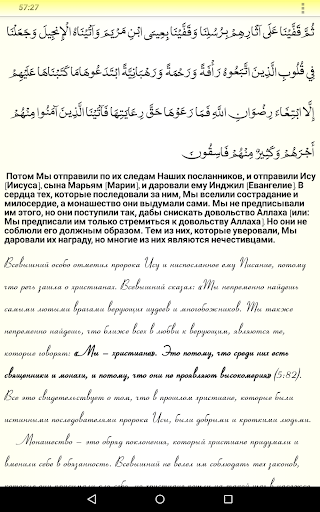 57:27
ثُمَّ قَفَّيْنَا عَلَى آثَارِهِم بِرُسُلِنَا وَقَفَّيْنَا بِعِيسَى ابْنِ مَرْيَمَ وَآتَيْنَاهُ الْإِنجِيلَ وَجَعَلْنَا
فِي قُلُوبِ الَّذِينَ اتَّبَعُوهُ رَأْفَةً وَرَحْمَةً وَرَهْبَانِيَّةً ابْتَدَعُوهَا مَا كَتَبْنَاهَا عَلَيْهِمْ
إِلَّا ابْتِغَاءَ رِضْوَانِ اللَّهِ فَمَا رَعَوْهَا حَقَّ رِعَايَتِهَا فَآتَيْنَا الَّذِينَ آمَنُوا مِنْهُمْ
أَجْرَهُمْ وَكَثِيرٌ مِّنْهُمْ فَاسِقُونَ
Потом Мы отправили по их следам Наших посланников, и отправили Ису
[Иисуса], сына Марьям [Марии], и даровали ему Инджил [Евангелие]. В
сердца тех, которые последовали за ним, Мы вселили сострадание и
милосердие, а монашество они выдумали сами. Мы не предписывали
им этого, но они поступили так, дабы снискать довольство Аллаха [или:
Мы предписали им только стремиться к довольству Аллаха]. Но они не
соблюли его должным образом. Тем из них, которые уверовали, Мы
даровали их награду, но многие из них являются нечестивцами.
Всевышний особо отметил пророка Ису и ниспосланное ему Писание, потому
что речь зашла о христианах. Всевышний сказал: «Ты непременно найдешь
самыми лютыми врагами верующих иудеев и многобожников. Ты также
непременно найдешь, что ближе всех в любви к верующим, являются те,
которые говорят: «Мы – христиане». Это потому, что среди них есть
священники и монахи, и потому, что они не проявляют высокомерия» (5:82).
Все это свидетельствует о том, что в прошлом христиане, которые были
истинными последователями пророка Исы, были добрыми и кроткими людьми.
Монашество – это обряд поклонения, который христиане придумали и
вменили себе в обязанность. Всевышний не велел им соблюдать тех законов,